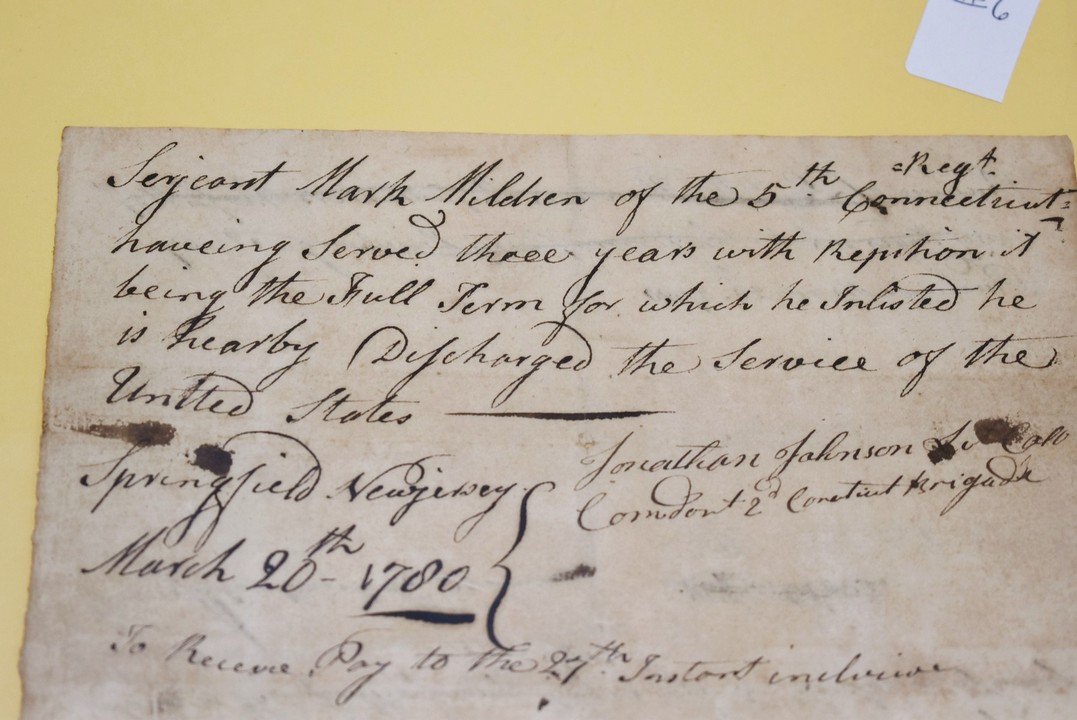 6
=Regt.
Serjeant Mark Mildren of the 5th Connecticut=
haveing Served three years with Repition it
being the Full Term for which he Inlisted he
is hearby Discharged the Service of the
United States
Jonathan Johnson Lt Coll
Comdont 2d Coneticut Brigade
Springfield Newjersey
March 20th - 1780
To Receive Pay to the 27th Instant inclusive